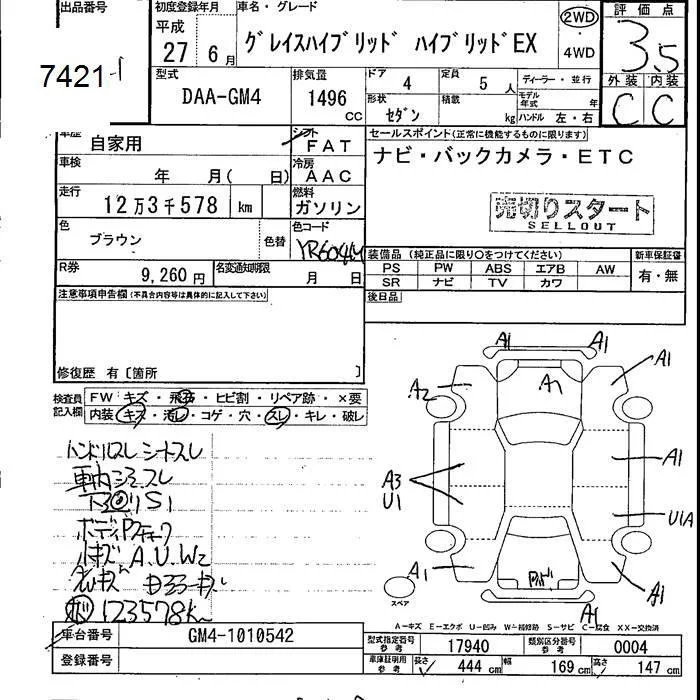 出品番号
7421
初度登録年月
平成
27 6 月
車名・グレード
グレイスハイブリッド ハイブリッドEX
2WD
4WD
評価点
3.5
外装 内装
C C
型式
DAA-GM4
排気量
1496
CC
ドア
4
定員
5 人
形状
セダン
積載
kg
ディーラー・並行
モデル年式 年
ハンドル 左・右
車歴
自家用
シフト
FAT
車検
年 月( 日)
冷房
AAC
走行
12万3千578 km
燃料
ガソリン
色
ブラウン
色替
色コード
YR604M
R券
9,260 円
名変通知期限
月 日
セールスポイント(正常に機能するものに限ります)
ナビ・バックカメラ・ETC
売切りスタート
SELLOUT
装備品(純正品に限り○をつけてください)
新車保証書
PS PW ABS エアB AW
SR ナビ TV カワ
有・無
後日品
注意事項申告欄(不具合内容等は具体的に記入して下さい)
修復歴 有〔箇所 〕
検査員記入欄
FW キズ・飛石・ヒビ割・リペア跡・×要
内装 キズ・汚レ・コゲ・穴・スレ・キレ・破レ
ハンドルスレ シートスレ
車内シミスレ
ボディ
小キズ A.U.W2
123578K
A1
A1
A1
A2
A3
U1
A1
U1A
A1
A1
A1
スペア
A-キズ E-エクボ U-凹み W-補修跡 S-サビ C-腐食 XX-交換済
車台番号
GM4-1010542
登録番号
型式指定番号
参考
17940
類別区分番号
参考
0004
車庫証明用
参考
長さ 444 cm
幅 169 cm
高さ 147 cm